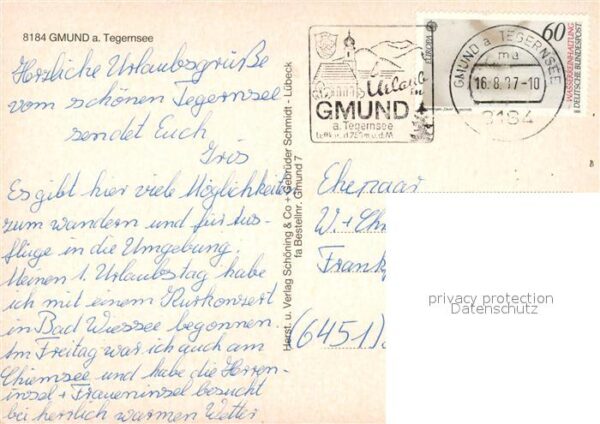 8184 GMUND a. Tegernsee
Herzliche Urlaubsgrüße
vom schönen Tegernsee
sendet Euch
Iris
Es gibt hier viele Möglichkeiten
zum wandern und für Aus-
flüge in die Umgebung.
Meinen 1. Urlaubstag habe
ich mit einem Kurkonzert
in Bad Wiessee begonnen.
Am Freitag war ich auch am
Chiemsee und habe die Herren-
insel + Fraueninsel besucht
bei herrlich warmen Wetter
Herst. u. Verlag Schöning & Co + Gebrüder Schmidt - Lübeck
fa Bestellnr. Gmund 7
Urlaub
in
GMUND
a. Tegernsee
EUROPA
60
WASSERREINHALTUNG
DEUTSCHE BUNDESPOST
GMUND a TEGERNSEE
ma
16.8.87-10
8184
Ehepaar
W. + Chr
Frank
(6451)
privacy protection
Datenschutz